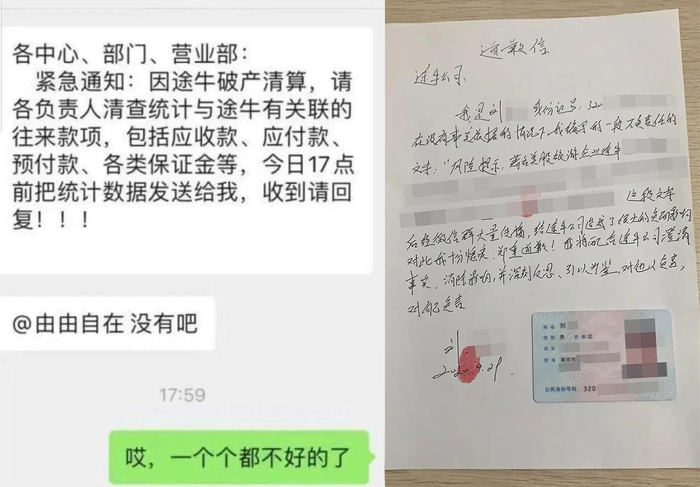 各中心、部门、营业部:
紧急通知: 因途牛破产清算，请
各负责人清查统计与途牛有关联的
往来款项，包括应收款、应付款、
预付款、各类保证金等，今日17点
前把统计数据发送给我，收到请回
复！！！
@由由自在 没有吧
17:59
哎，一个个都不好的了
道歉信
途牛公司:
我是刘 身份证号: 320
在没有事实依据的情况下，我编写的一段不负责任的
文字: "风险提示,
这段文字
后经微信群大量传播，给途牛公司造成了 的负面影响
对此我十分愧疚，郑重道歉！我将配合途牛公司澄清
事实、消除影响，并深刻反思、引以为鉴，对他人负责,
对自己负责
刘
2020.4.29
姓名 刘
性别 男 民族 汉
出生
住址 南京市
公民身份号码 320